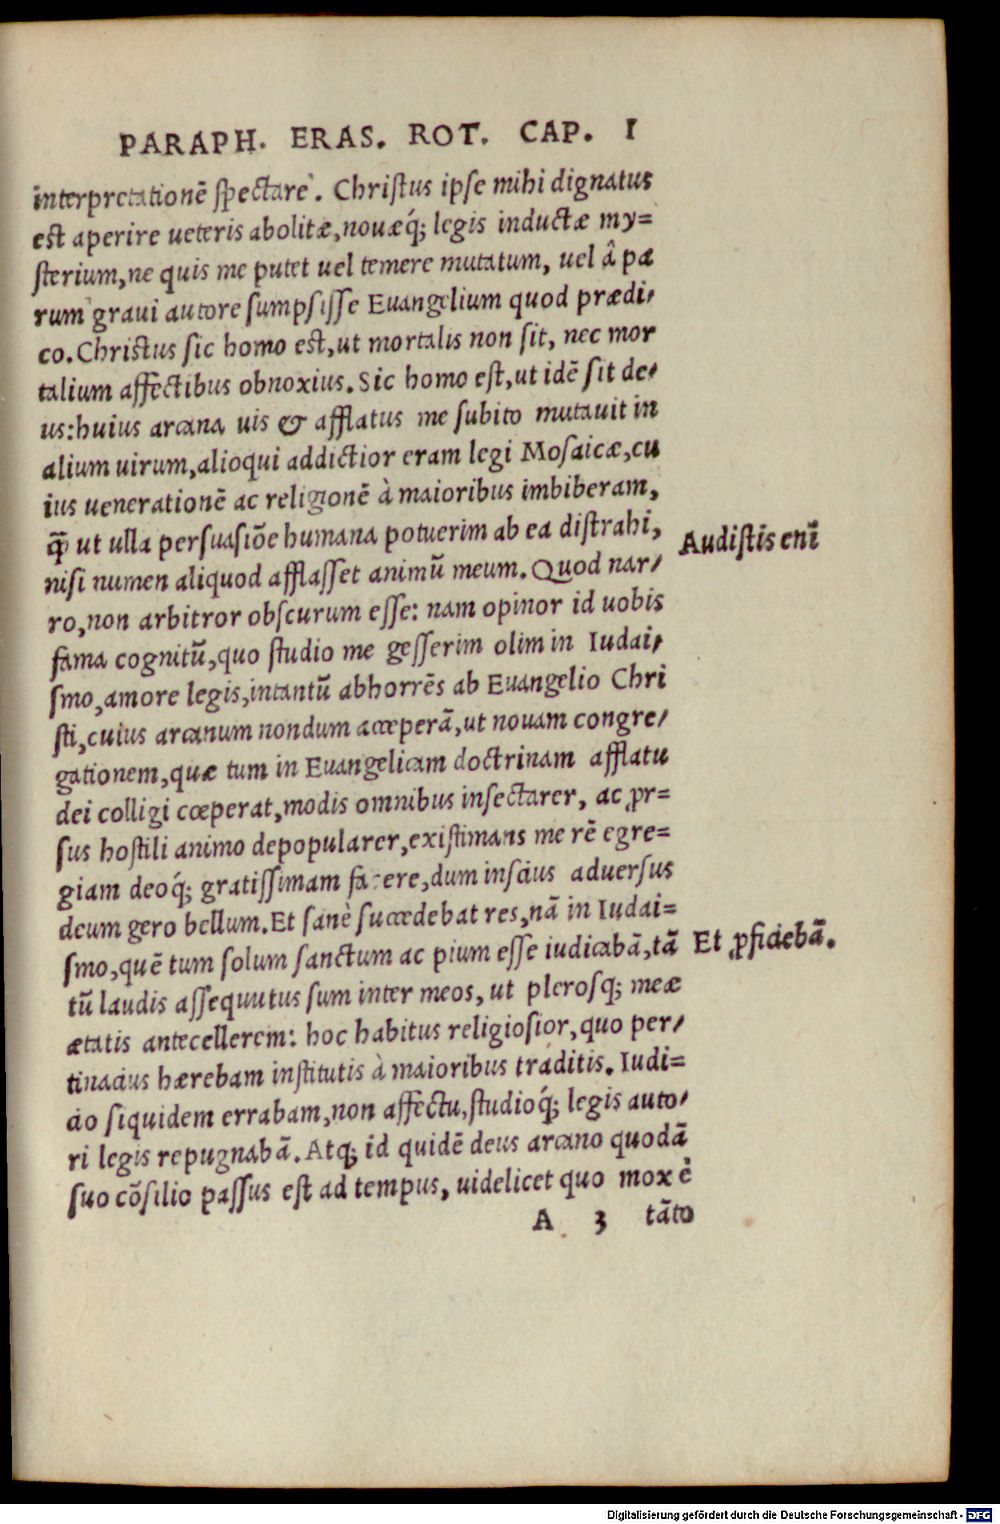 PARAPH. ERAS. ROT. CAP. I
interpretationē spectare. Christus ipse mihi dignatus
est aperire ueteris abolitæ, nouæq́; legis inductæ my=
sterium, ne quis me putet uel temere mutatum, uel â pa
rum graui autore sumpsisse Euangelium quod prædi/
co. Christus sic homo est, ut mortalis non sit, nec mor
talium affectibus obnoxius. Sic homo est, ut idē sit de/
us: huius arcana uis & afflatus me subito mutauit in
alium uirum, alioqui addictior eram legi Mosaicæ, cu
ius uenerationē ac religionē à maioribus imbiberam,
q̄ ut ulla persuasiōe humana potuerim ab ea distrahi,
Audistis enī
nisi numen aliquod afflasset animū meum. Quod nar/
ro, non arbitror obscurum esse: nam opinor id uobis
fama cognitū, quo studio me gesserim olim in Iudai/
smo, amore legis, intantū abhorrēs ab Euangelio Chri
sti, cuius arcanum nondum acceperā, ut nouam congre/
gationem, quæ tum in Euangelicam doctrinam afflatu
dei colligi cœperat, modis omnibus insectarer, ac ꝓr=
sus hostili animo depopularer, existimans me rē egre=
giam deoq́; gratissimam facere, dum inscius aduersus
deum gero bellum. Et sanè succedebat res, nā in Iudai=
smo, quē tum solum sanctum ac pium esse iudicabā, tā
Et ꝓficiebā.
tū laudis assequutus sum inter meos, ut plerosq; meæ
ætatis antecellerem: hoc habitus religiosior, quo per/
tinacius hærebam institutis à maioribus traditis. Iudi=
cio siquidem errabam, non affectu, studioq́; legis auto/
ri legis repugnabā. Atq; id quidē deus arcano quodā
suo cōsilio passus est ad tempus, uidelicet quo mox è
A 3 tāto
Digitalisierung gefördert durch die Deutsche Forschungsgemeinschaft - DFG